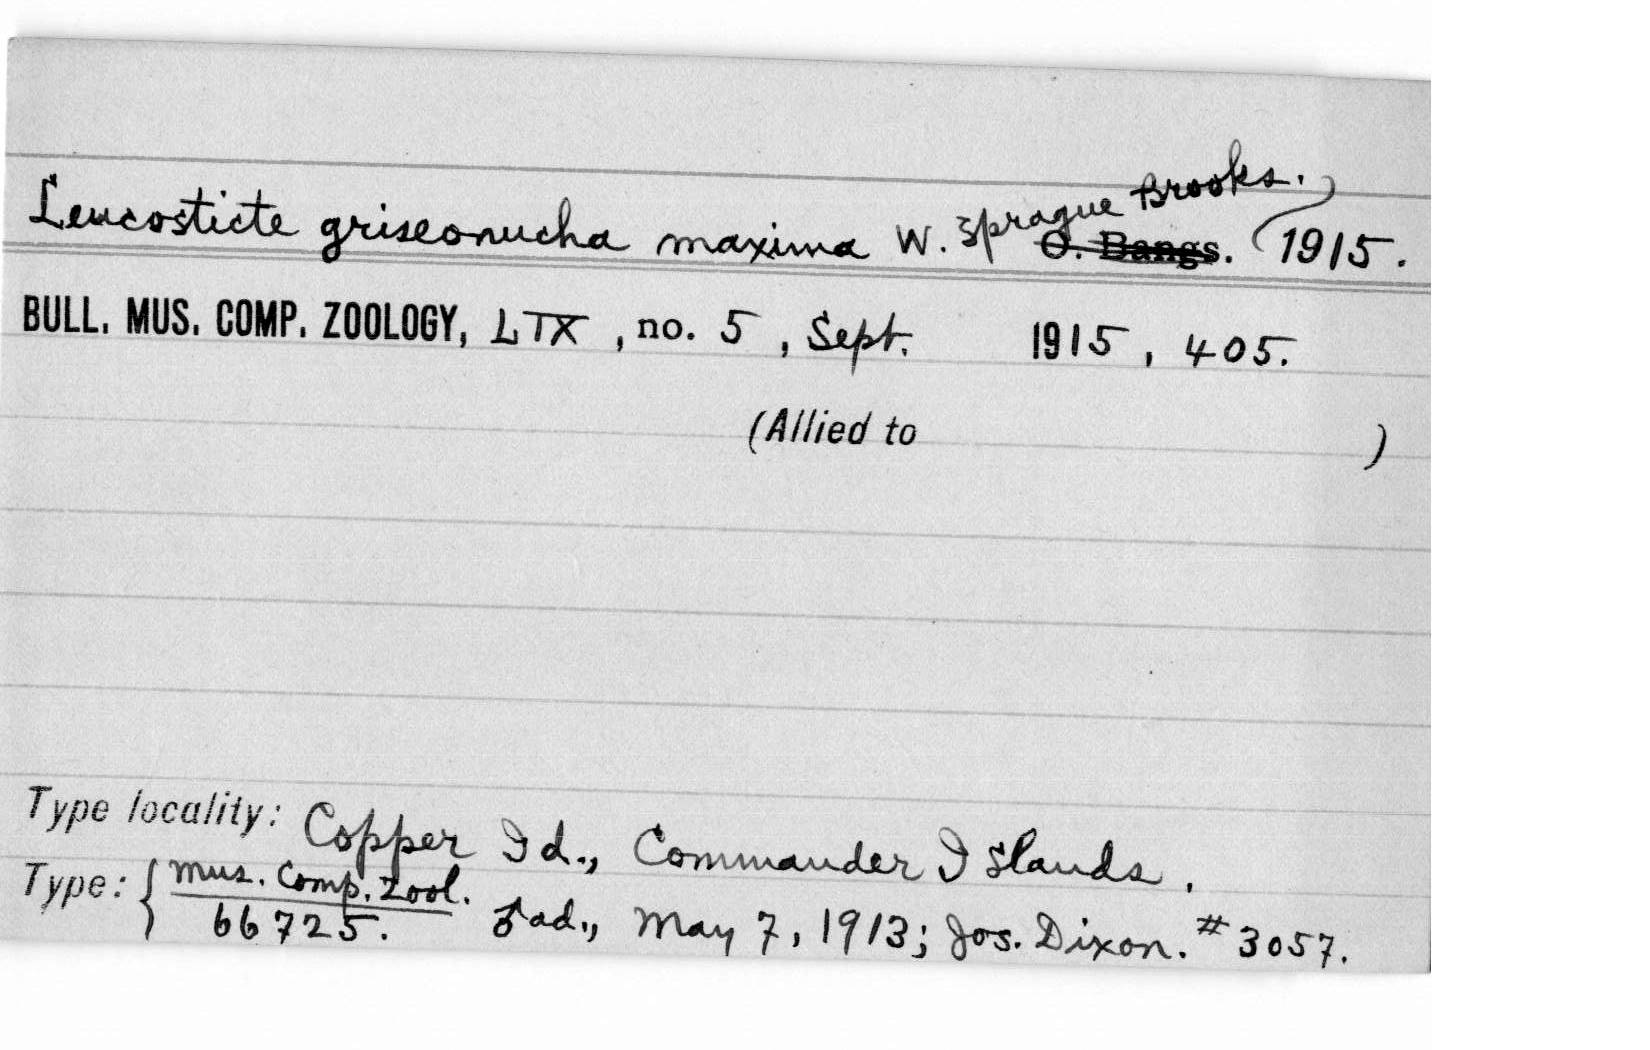 Leucosticte griseonucha maxima W. Sprague Brooks.
O. Bangs. 1915.
BULL. MUS. COMP. ZOOLOGY, LIX, no. 5, Sept. 1915, 405.
(Allied to )
Type locality: Copper Id., Commander Islands.
Type: { Mus. Comp. Zool.
66725. ♂ ad., May 7, 1913; Jos. Dixon. #3057.